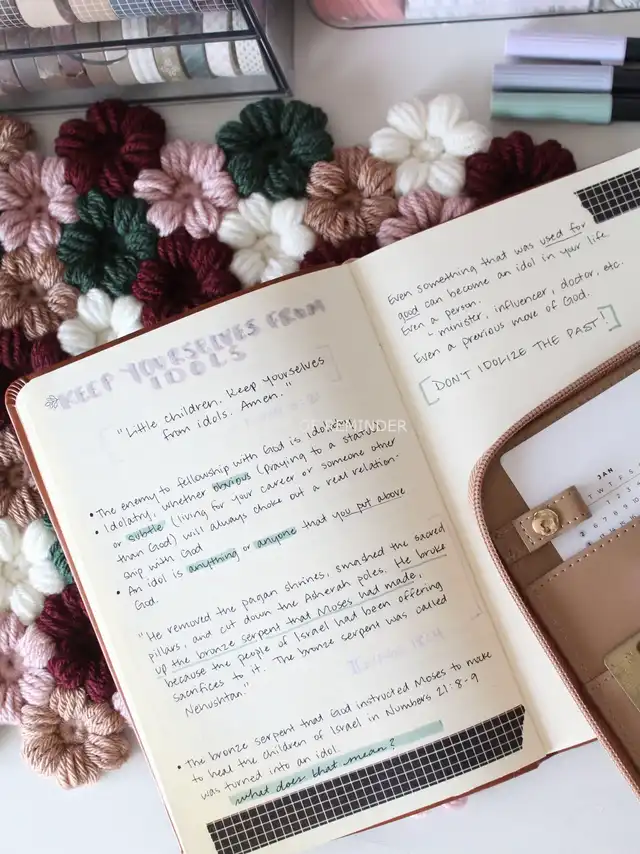 KEEP YOURSELVES FROM
IDOLS
"Little children, keep yourselves
from idols. Amen."
• The enemy to fellowship with God is
• Idolatry, whether obvious (praying to a statue)
or subtle (living for your career or someone other
than God) will always choke out a real relation-
ship with God
• An idol is anything or anyone that you put above
God.
"He removed the pagan shrines, smashed the sacred
pillars, and cut down the Asherah poles. He broke
up the bronze serpent that Moses had made,
because the people of Israel had been offering
sacrifices to it. The bronze serpent was called
Nehushtan."
18:4
• The bronze serpent that God instructed Moses to make
to heal the children of Israel in Numbers 21:8-9
was turned into an idol.
what does that mean?
Even something that was used for
good can become an idol in your life
Even a person.
minister, influencer, doctor, etc.
Even a previous move of God.
[DON'T IDOLIZE THE PAST!]
JAN